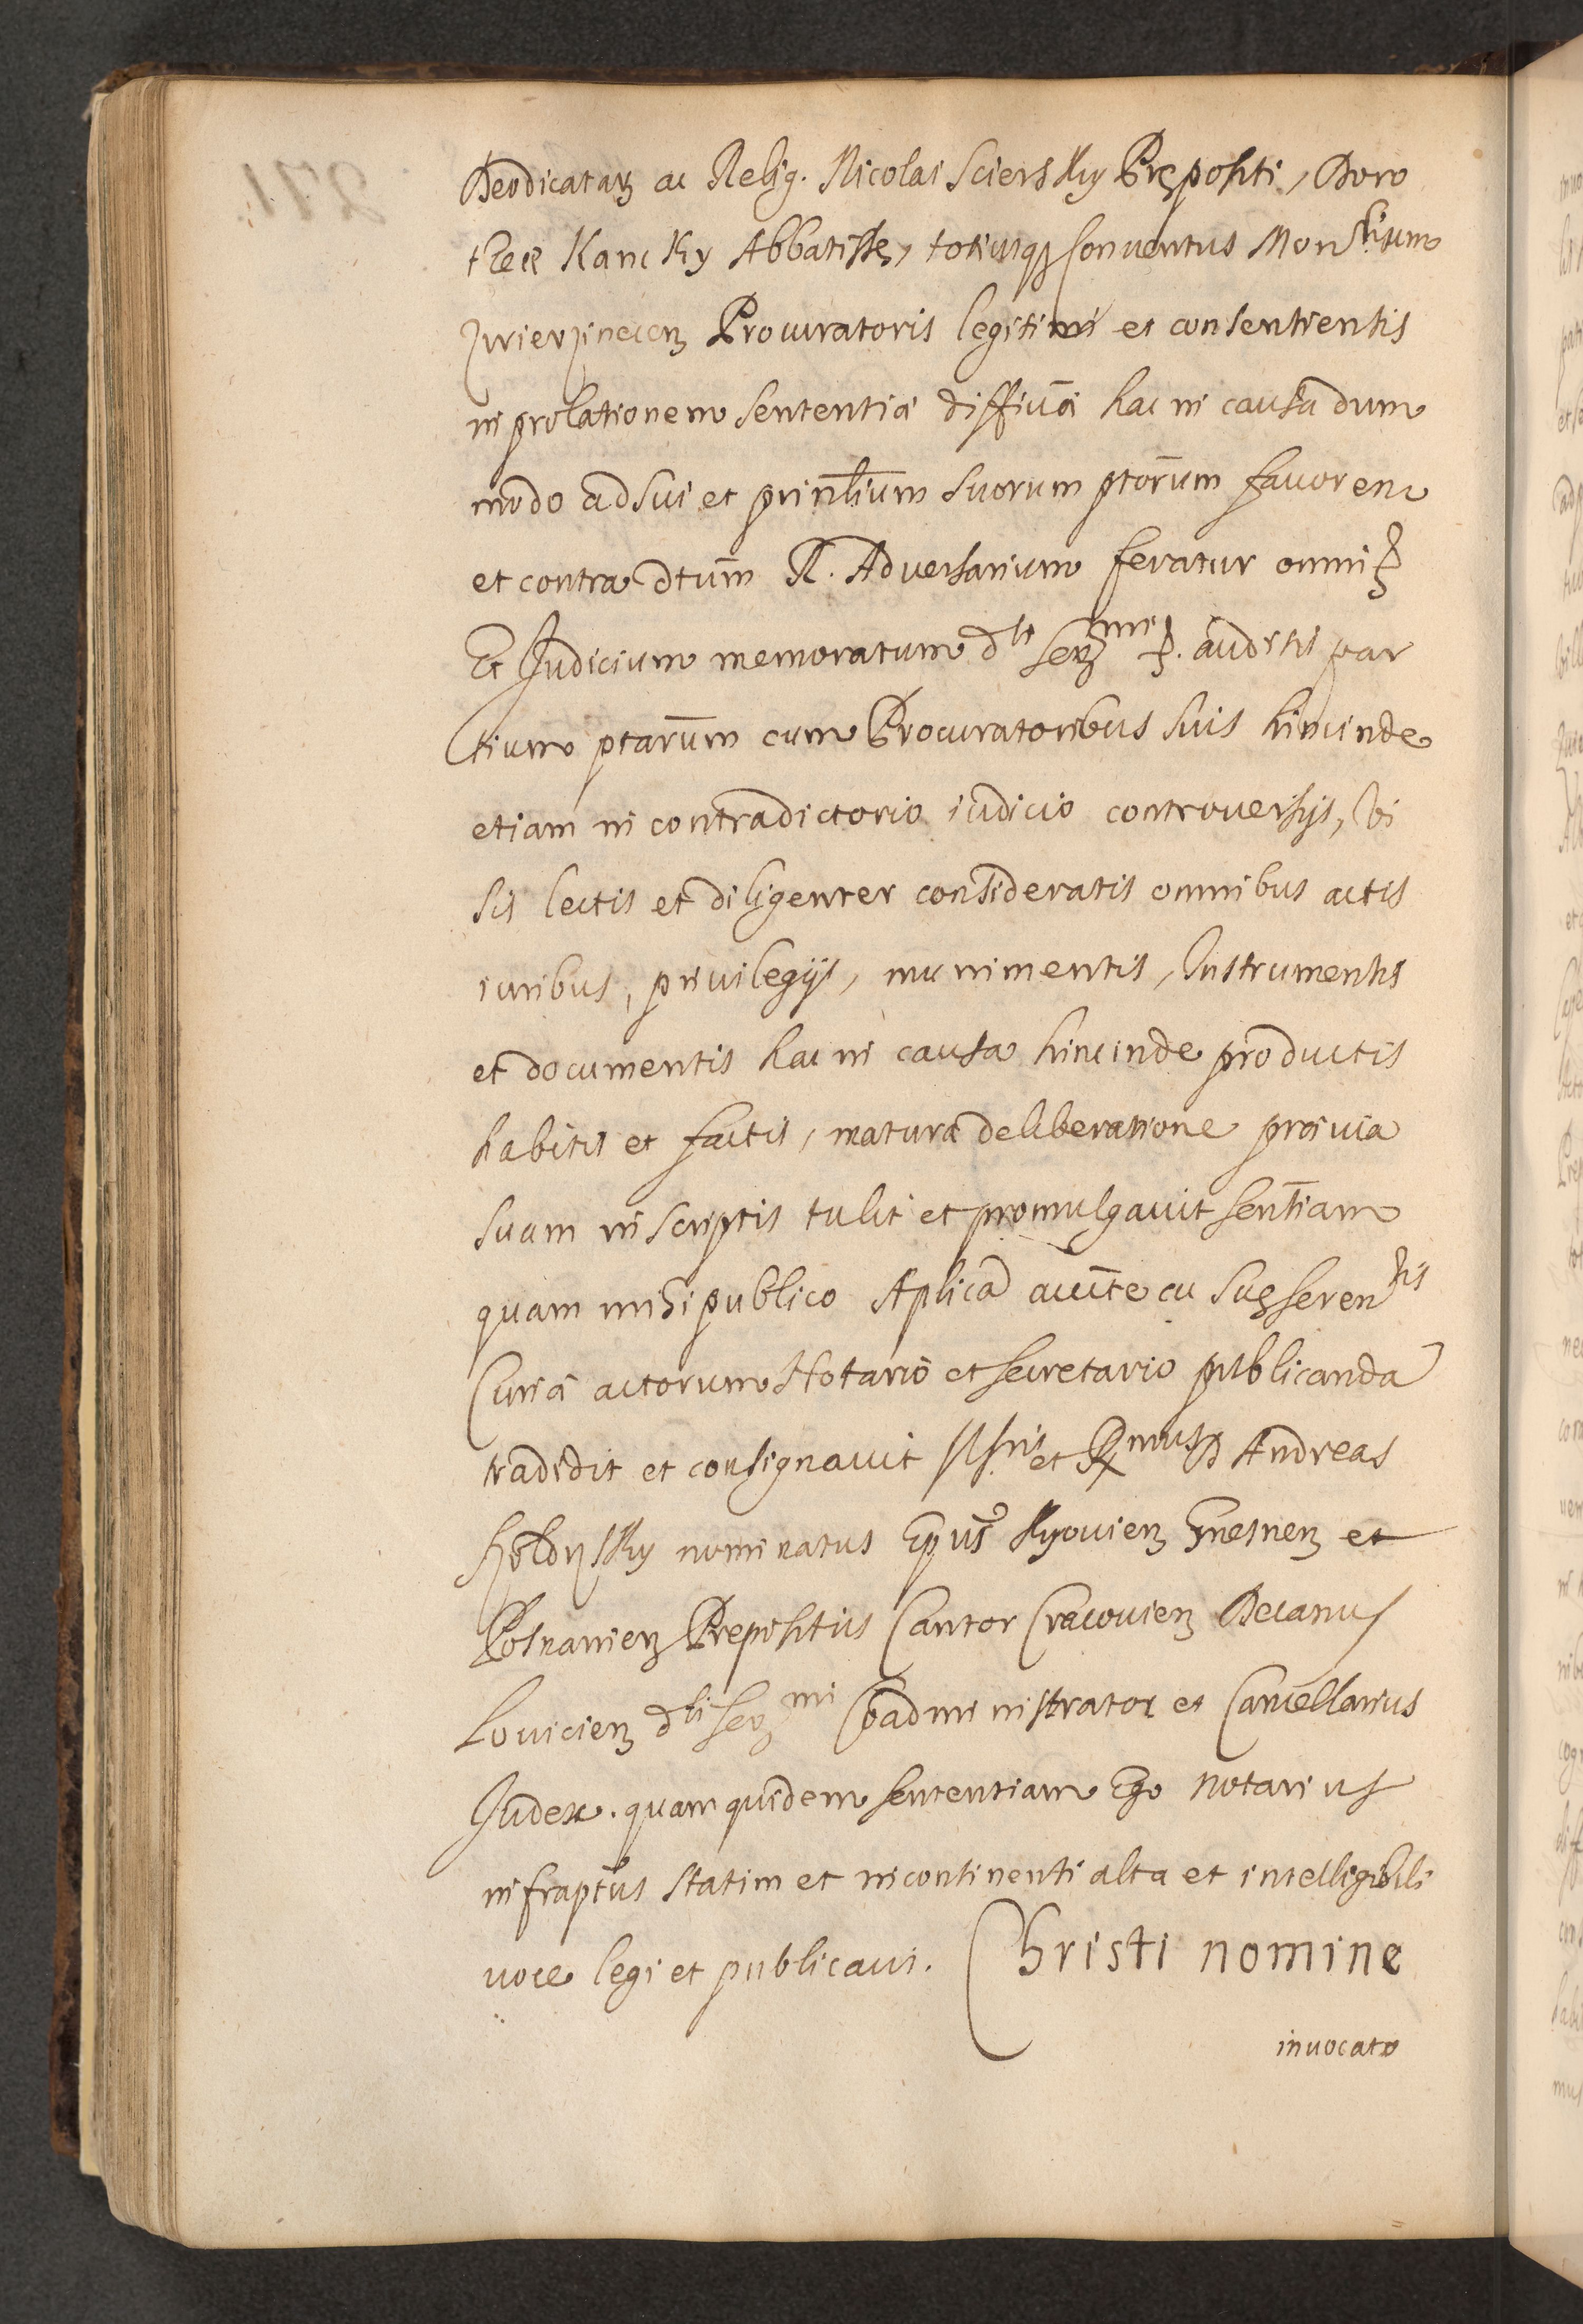 Deodicatarz ac Relig. Nicolai Sciersky Prępositi, Doro
theæ Kancky Abbatissę, totiusq3 Conuentus Monrlium
Procuratoris legitimi et consentientis
in prolationem sententiæ diffiuæ hac in causa dum
modo ad sui et prinlium suorum ptorum fauorem
et contra dtum R. Aduersarium feratur omni
Et Judicium memoratum dti Serzmi auditis par
tium ptarum cum Procuratoribus suis hincinde
etiam in contradictorio iudicio controuersijs, vi
sis lectis et diligenter consideratis omnibus actis
iuribus, priuilegijs, munimentis, Instrumentis
et documentis hac in causa hincinde productis
habitis et factis, matura deliberatione præuia
suam in scriptis tulit et promulgauit sentiam
quam mihi publico Aplica aucte ac Suę Serentis
Curiæ actorum Notario et secretario publicanda
tradidit et consignauit Illris et Rmus D Andreas
Szołdrsky nominatus Epus Kyouienz Gnesnenz et
Posnanienz Prepositus Cantor Cracouienz Decanus
Louicienz dti Serzmi Coadministrator et Cancellarius
Judex. quam quidem sententiam Ego notarius
infraptus statim et incontinenti alta et intelligibili
uoce legi et publicaui. Christi nomine
inuocato